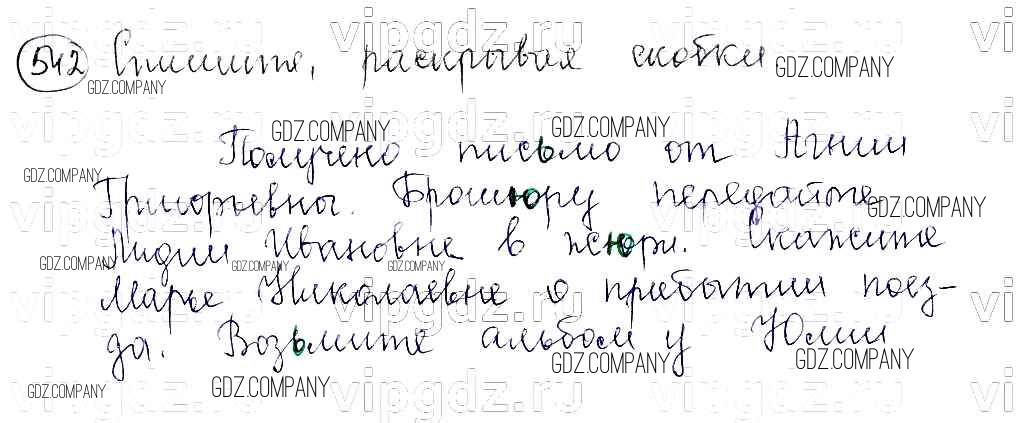 542 Спишите, раскрывая скобки
Получено письмо от Агнии
Григорьевны. Брошюру передайте
Лидии Ивановне в жюри. Скажите
Марье Николаевне о прибытии поез-
да. Возьмите альбом у Юлии
vipgdz.ru
GDZ.COMPANY